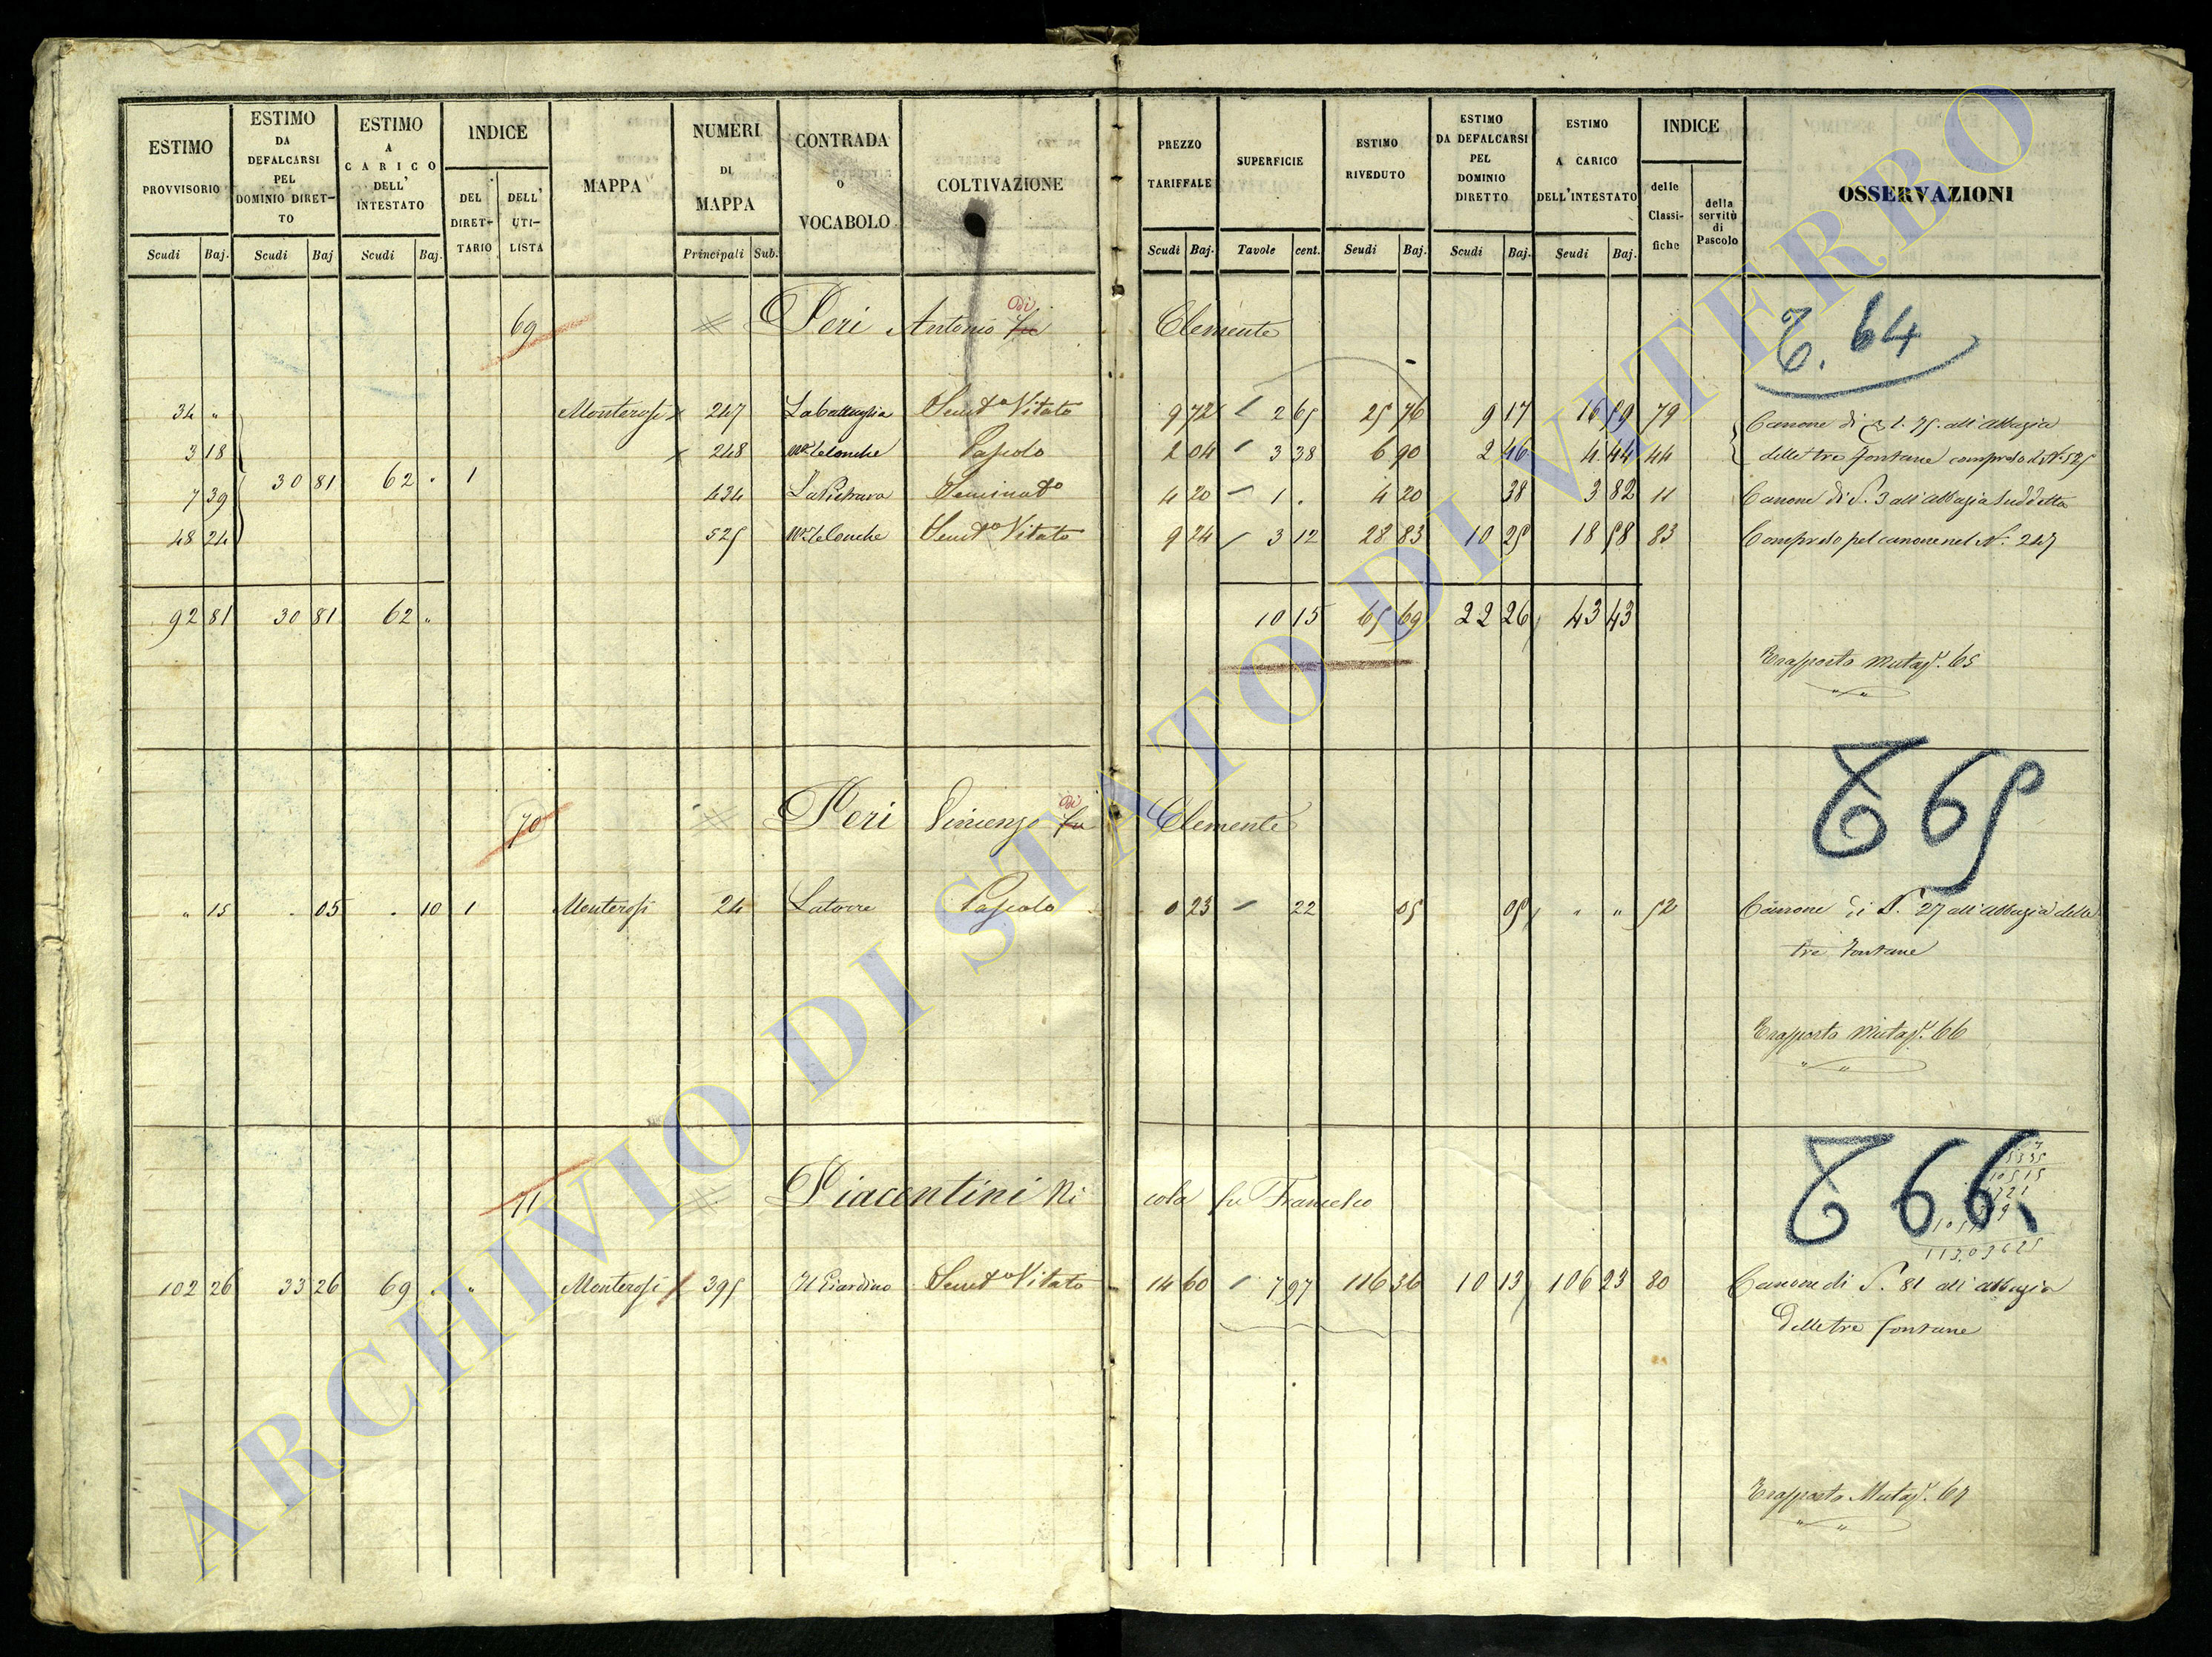 ESTIMO PROVVISORIO Scudi Baj.
ESTIMO DA DEFALCARSI PEL DOMINIO DIRETTO Scudi Baj
ESTIMO A CARICO DELL' INTESTATO Scudi Baj.
INDICE DEL DIRETTARIO DELL' UTILISTA
MAPPA
NUMERI DI MAPPA Principali Sub.
CONTRADA O VOCABOLO
COLTIVAZIONE
PREZZO TARIFFALE Scudi Baj.
SUPERFICIE Tavole cent.
ESTIMO RIVEDUTO Scudi Baj.
ESTIMO DA DEFALCARSI PEL DOMINIO DIRETTO Scudi Baj.
ESTIMO A CARICO DELL'INTESTATO Scudi Baj.
INDICE delle Classifiche della servitù di Pascolo
OSSERVAZIONI
69 Peri Antonio fu Di Clemente T. 64
34 " Monterosi 247 Semto Vitato 9 72 2 65 25 76 9 17 16 59 79 Canone di all'Abbazia
3 18 248 Pascolo 2 04 3 38 6 90 2 46 4 44 44 delle tre fontane compreso il N. 525
30 81 62 . 1
7 39 434 Seminato 4 20 1 . 4 20 38 3 82 11 Canone di S. 3 all'Abbazia suddetta
48 24 525 Semto Vitato 9 24 3 12 28 83 10 25 18 58 83 Compreso pel canone nel N. 247
92 81 30 81 62 " 10 15 65 69 22 26 43 43
Trasporto Mutaze. 65
70 Peri Vincenzo fu Di Clemente T 65
" 15 . 05 . 10 1 Monterosi 24 Latorre Pascolo 0 23 22 05 05 " " 52 Canone di S. 27 all'Abbazia delle
tre Fontane
Trasporto Mutaze. 66
71 Piacentini Nicola fu Francesco T 66.
102 26 33 26 69 . " Monterosi 395 Il Giardino Semto Vitato 14 60 7 97 116 36 10 13 106 23 80 Canone di S. 81 all'Abbazia
delle tre fontane
Trasporto Mutaze. 67
ARCHIVIO DI STATO DI VITERBO